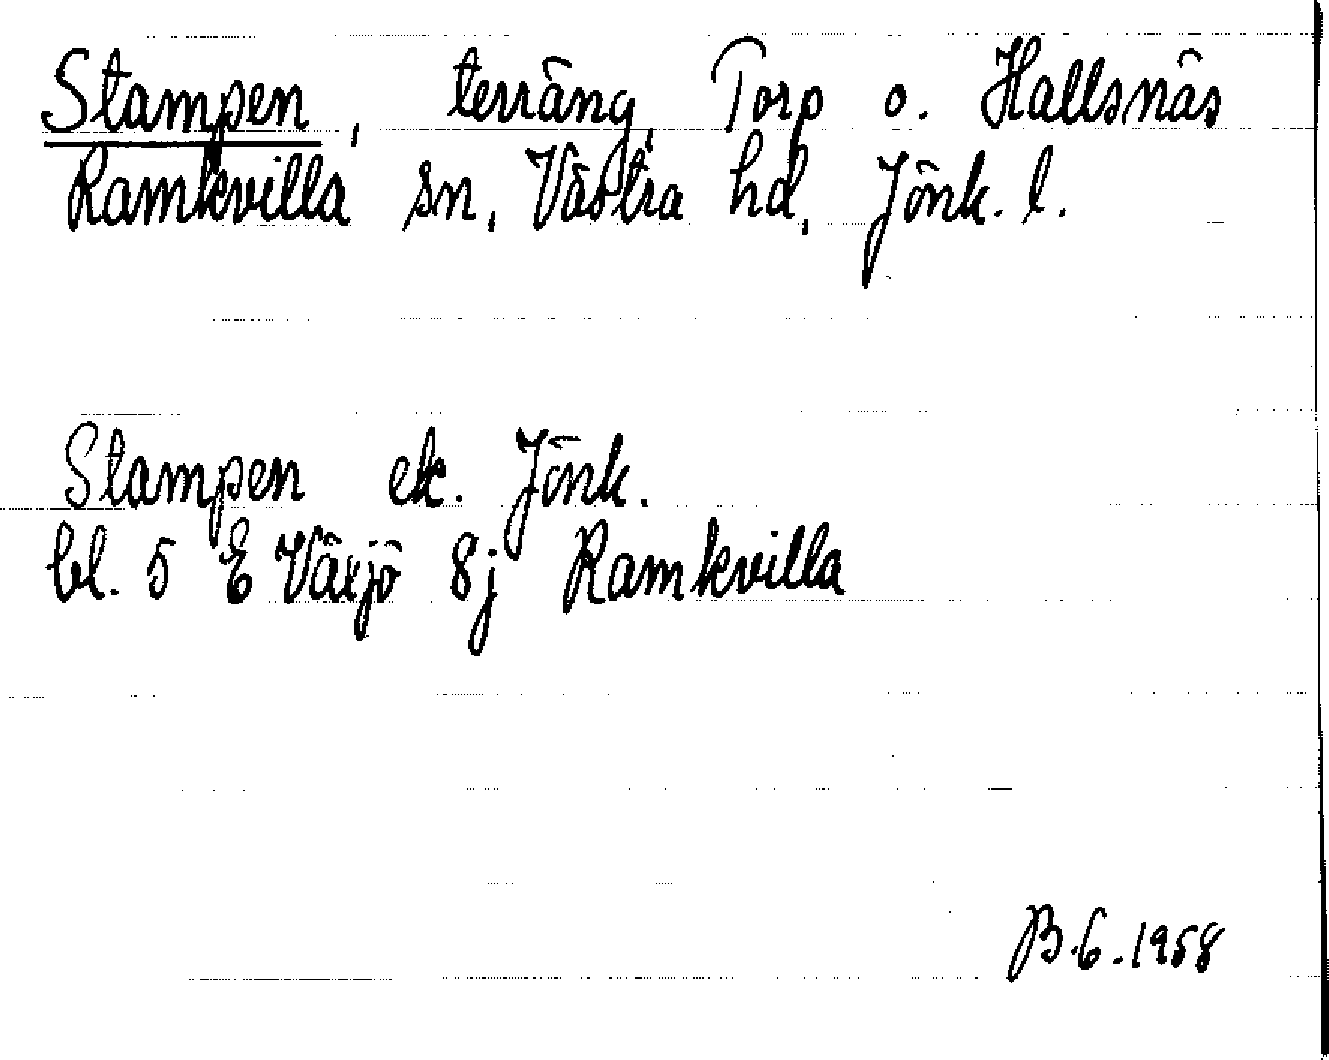 Stampen, terräng, Torp o. Hallsnäs
Ramkvilla sn, Västra hd, Jönk. l.
Stampen ek. Jönk.
bl. 5 E Växjö 8j Ramkvilla
B.G. 1958